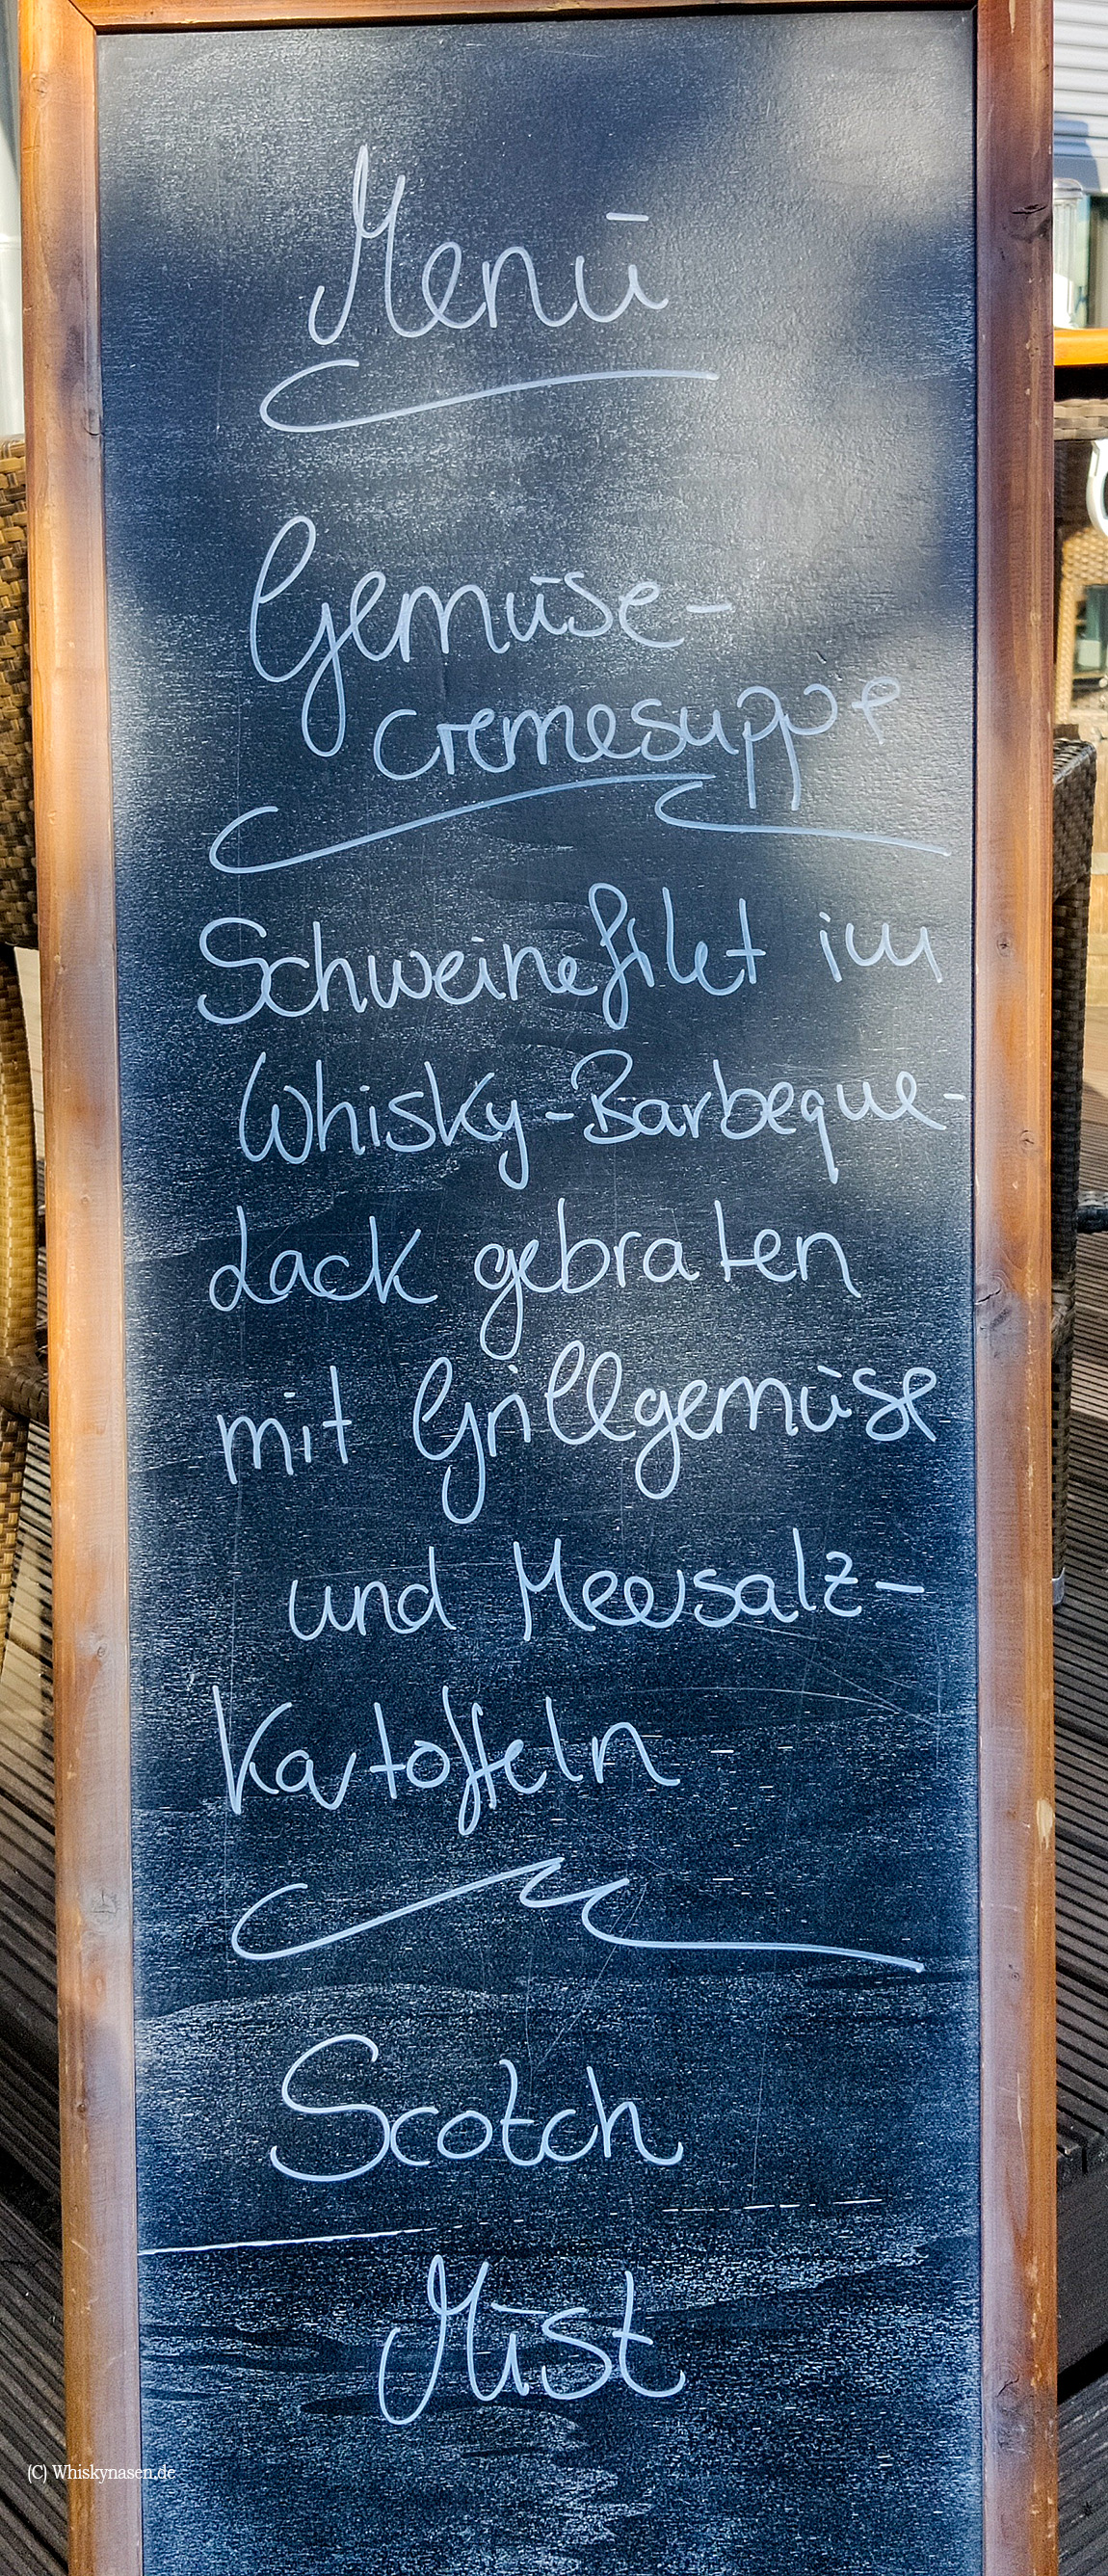 Menü
Gemüse-
cremesuppe
Schweinefilet im
Whisky-Barbeque-
Lack gebraten
mit Grillgemüse
und Meersalz-
Kartoffeln
Scotch
Mist
(C) Whiskynasen.de